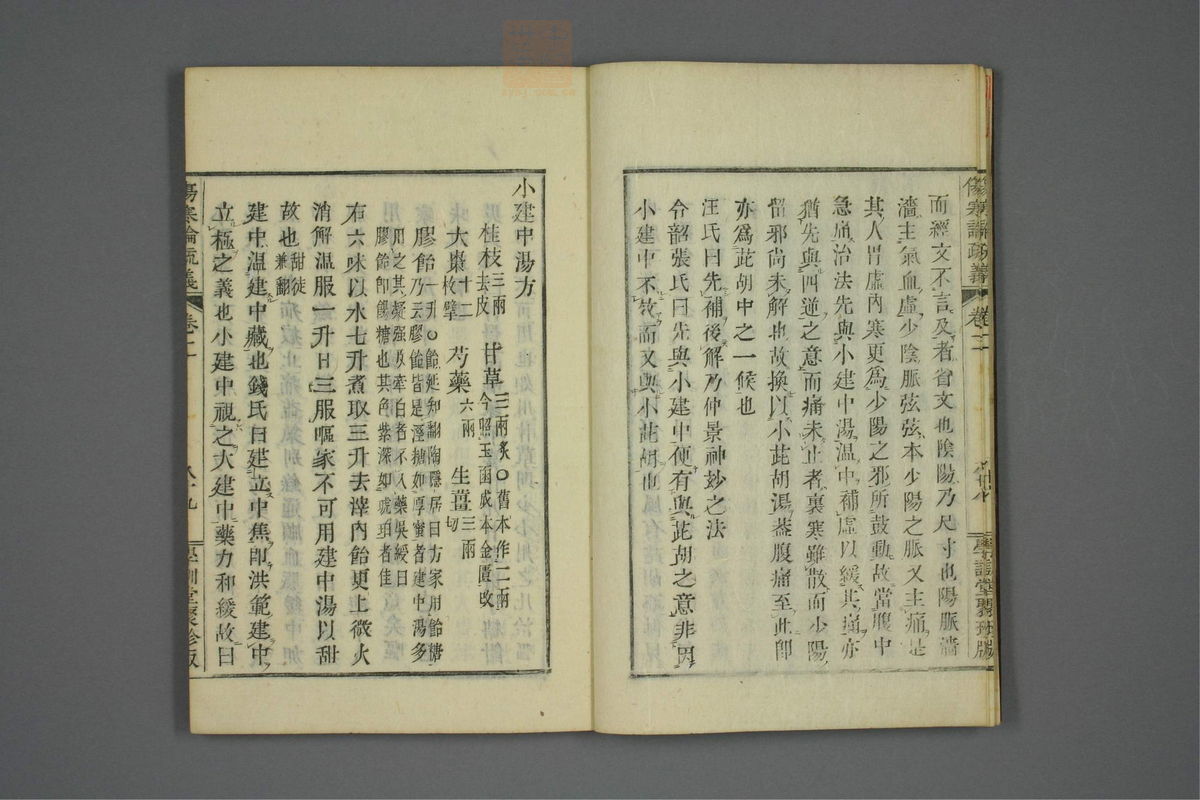 傷寒論疏義 卷二 學訓堂聚珍版
而經文不言及者省文也陰陽乃尺寸也陽脈濇
濇主氣血虛少陰脈弦弦本少陽之脈又主痛是
其人胃虛內寒更爲少陽之邪所鼓動故當腹中
急痛治法先與小建中湯溫中補虛以緩其痛亦
猶先與四逆之意而痛未止者裏寒雖散而少陽
餘邪尚未解也故換以小茈胡湯蓋腹痛至此卽
亦爲茈胡中之一候也
汪氏曰先補後解乃仲景神妙之法
令韶張氏曰先與小建中便有與茈胡之意非因
小建中不效而又與小茈胡也
小建中湯方
桂枝三兩去皮 甘草三兩炙○舊本作二兩今照玉函成本金匱改
大棗十二枚擘 芍藥六兩 生薑三兩切
膠飴一升○飴延知翻陶隱居曰方家用飴糖乃云膠飴皆是溼糖如厚蜜者建中湯多
用之其凝强及牽白者不入藥吳綬曰膠飴卽餳糖也其色紫深如琥珀者佳
右六味以水七升煮取三升去滓內飴更上微火
消解溫服一升日三服嘔家不可用建中湯以甜
故也甜徒兼翻
建中溫建中藏也錢氏曰建立中焦卽洪範建中
立極之義也小建中視之大建中藥力和緩故曰
傷寒論疏義 卷二 八ノ九 學訓堂聚珍版